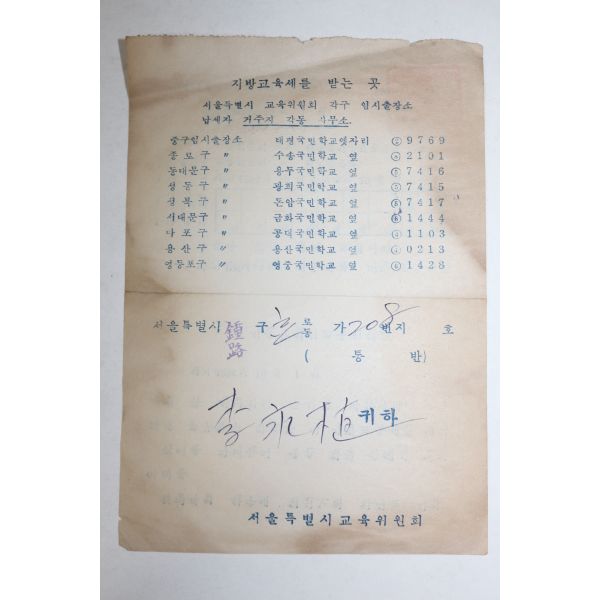 지방교육세를 받는 곳
서울특별시 교육위원회 각구 임시출장소
납세자 거주지 각동 사무소.
중구임시출장소 태평국민학교옛자리 ② 9769
종로구 〃 수송국민학교 옆 2101
동대문구 〃 용두국민학교 옆 7416
성동구 〃 광희국민학교 옆 7415
성북구 〃 돈암국민학교 옆 7417
서대문구 〃 금화국민학교 옆 1444
마포구 〃 공덕국민학교 옆 1103
용산구 〃 용산국민학교 옆 0213
영등포구 〃 영중국민학교 옆 1428
서울특별시 鍾路 구 로동 가 208 번지 호
( 통 반)
李永植 귀하
서울특별시교육위원회